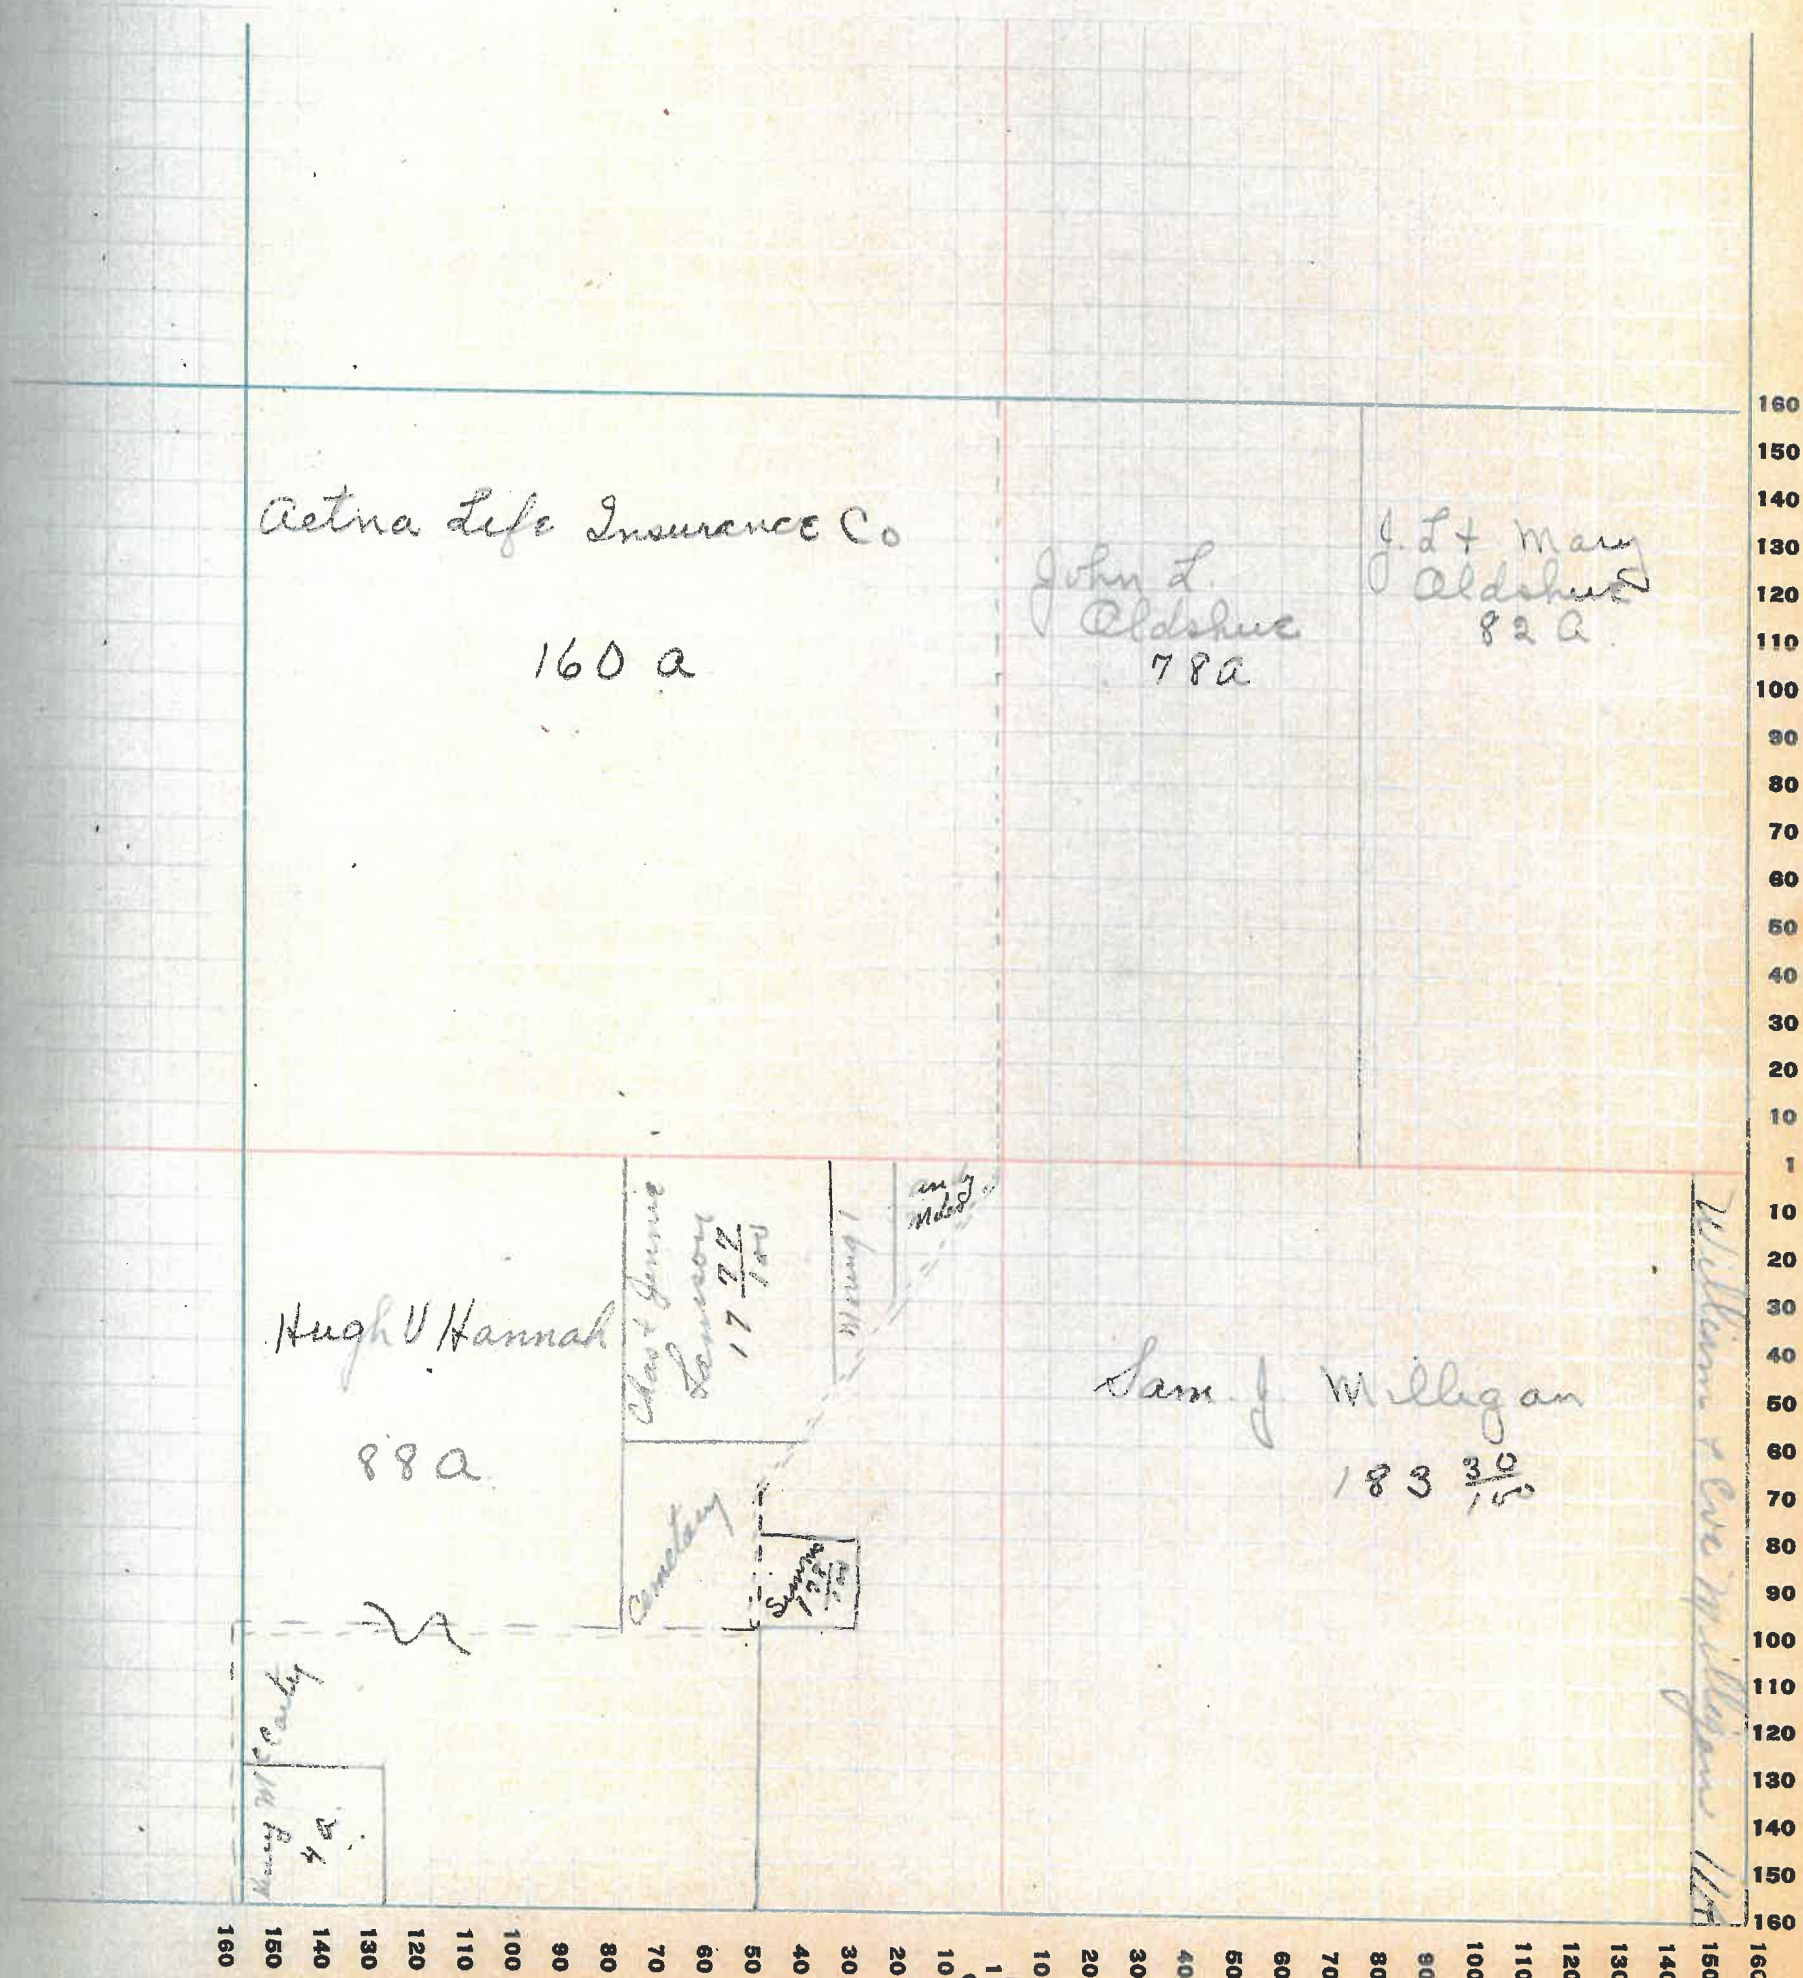 Aetna Life Insurance Co
160 a
John L.
Oldshue
78 a
J. L + Mary
Oldshue
82 a.
Hugh V Hannah
88 a
Chas + Jennie
Lamson
17 77/100
Cemetary
Sam. J. Milligan
183 30/100
William + Eva Milligan
Henry McCarty
4 a.
160
150
140
130
120
110
100
90
80
70
60
50
40
30
20
10
1
10
20
30
40
50
60
70
80
90
100
110
120
130
140
150
160
160
150
140
130
120
110
100
90
80
70
60
50
40
30
20
10
1
10
20
30
40
50
60
70
80
90
100
110
120
130
140
150
160